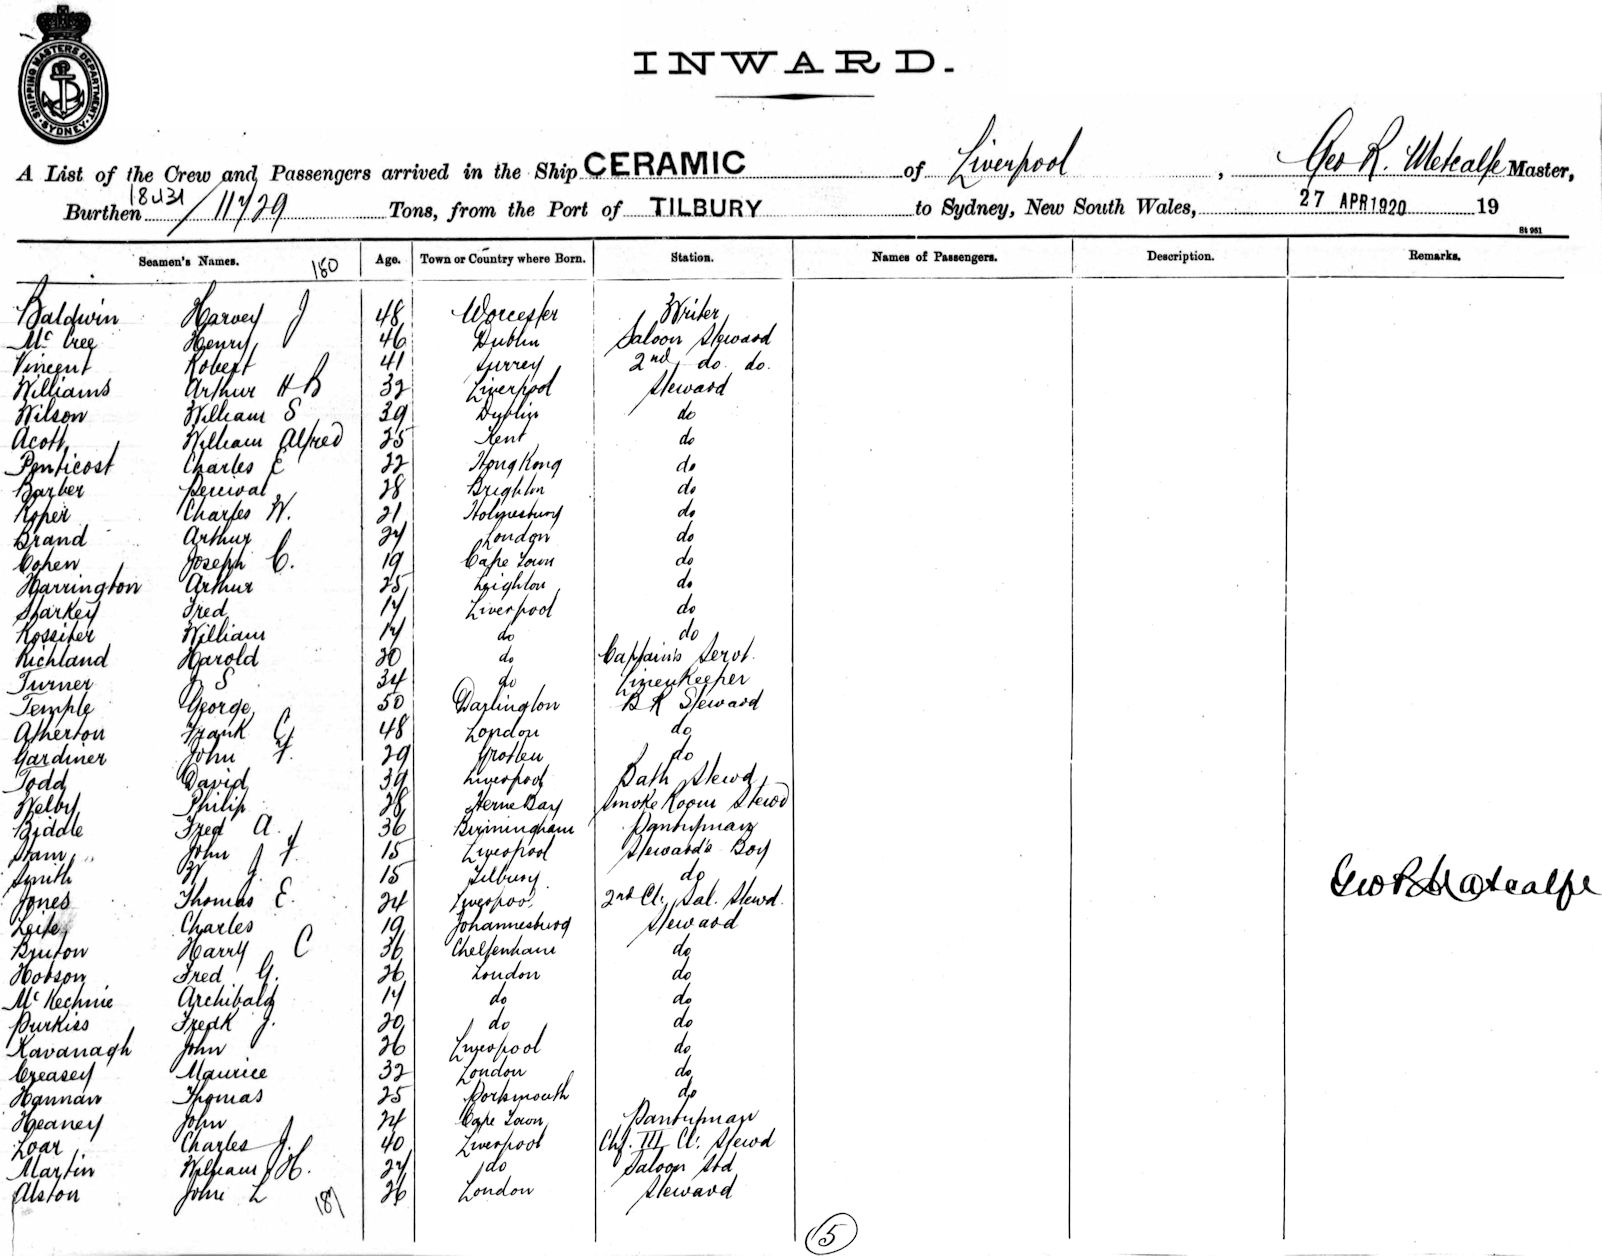 SHIPPING MASTERS DEPARTMENT
SYDNEY
INWARD.
A List of the Crew and Passengers arrived in the Ship CERAMIC of Liverpool, Geo R. Metcalfe Master,
Burthen / Tons, from the Port of TILBURY to Sydney, New South Wales, 27 APR 1920 19
St 961
Seamen's Names. 180 Age. Town or Country where Born. Station. Names of Passengers. Description. Remarks.
Baldwin Harvey J 48 Worcester Writer
McCree Henry 46 Dublin Saloon Steward
Vincent Robert 41 Surrey 2nd do. do.
Williams Arthur H B 32 Liverpool Steward
Wilson William S 39 Dublin do
Acott William Alfred 25 Kent do
Penticost Charles E 22 Hong Kong do
Barber Percival 28 Brighton do
Roper Charles W. 21 do
Brand Arthur 24 London do
Cohen Joseph C. 19 Cape Town do
Harrington Arthur 25 Leighton do
Starkey Fred 17 Liverpool do
Rossiter William 17 do do
Richland Harold 20 do Captain's Servt.
Turner J S 34 do Linenkeeper
Temple George 50 Darlington B R Steward
Atherton Frank C 48 London do
Gardiner John F. 29 do
Todd David 39 Liverpool Bath Stewd
Welby Philip 28 Herne Bay Smoke Room Stewd
Biddle Fred A. 36 Birmingham Pantryman
Stam John J F 15 Liverpool Steward's Boy
Smith W J. 15 Tilbury do
Jones Thomas E. 24 Liverpool 2nd Cl. Sal. Stewd.
Leite Charles 19 Johannesburg Steward
Bruton Harry C 36 Cheltenham do
Hobson Fred G. 26 London do
McKechnie Archibald 17 do do
Purkiss Fredk J. 20 do do
Kavanagh John 26 Liverpool do
Creasey Maurice 32 London do
Hannan Thomas 25 Portsmouth do
Heaney John 24 Cape Town Pantryman
Loar Charles J. 40 Liverpool Chf. III Cl. Stewd
Martin William H. 27 do Saloon Std
Alston John L 26 London Steward
187
Geo R Metcalfe
5